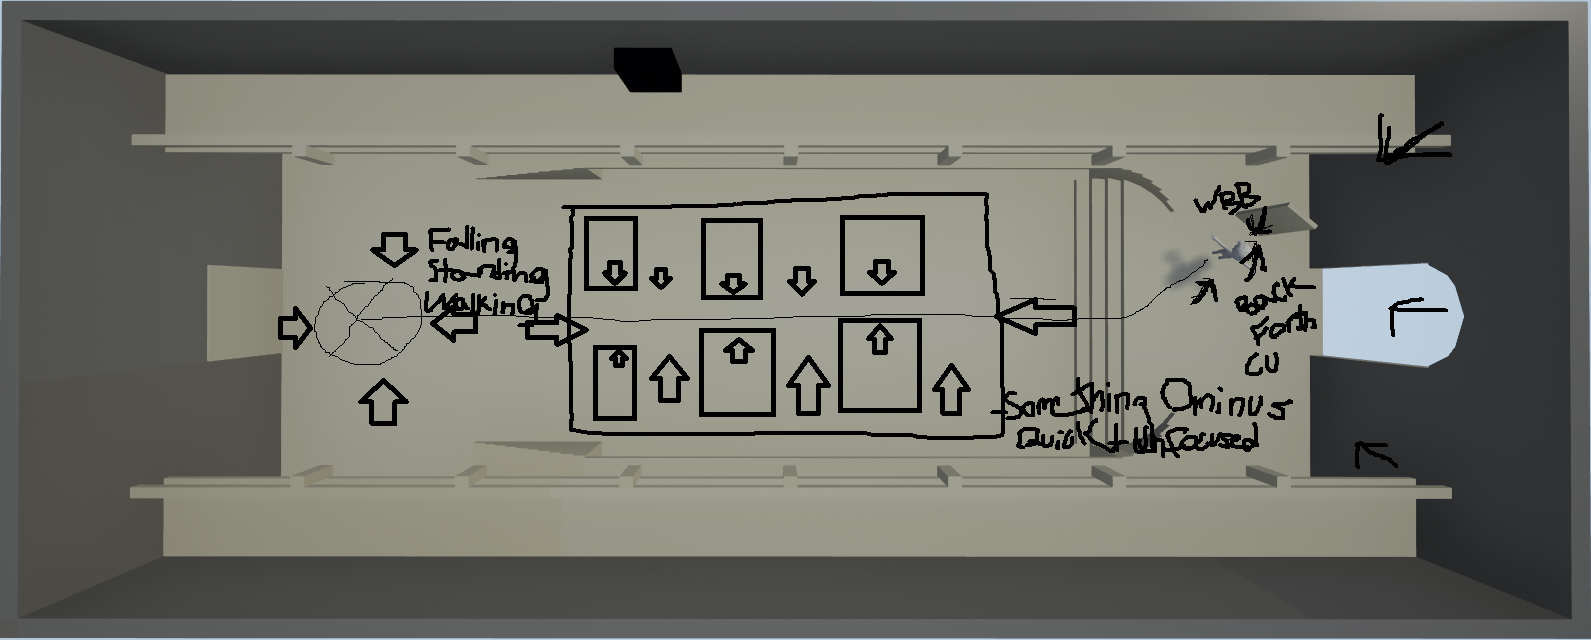 Falling
Standing
Walking
WBB
Back
Forth
CU
Something Ominus
Quick + Unfocused